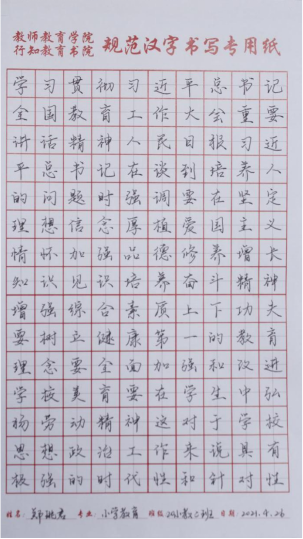 教师教育学院
行知教育书院 规范汉字书写专用纸
学习贯彻习近平总书记
全国教育工作大会重要
讲话精神人民日报习近
平总书记在谈到培养人
的问题时强调要在坚定
理想信念厚植爱国主义
情怀加强品德修养增长
知识见识培养奋斗精神
增强综合素质上下功夫
要树立健康第一的教育
理念要全面加强和改进
学校美育要在学生中弘
扬劳动精神这对于学校
思想政治工作来说具有
极强的时代性和针对性
姓名: 专业: 小学教育 班级: 日期: 2021.4.26